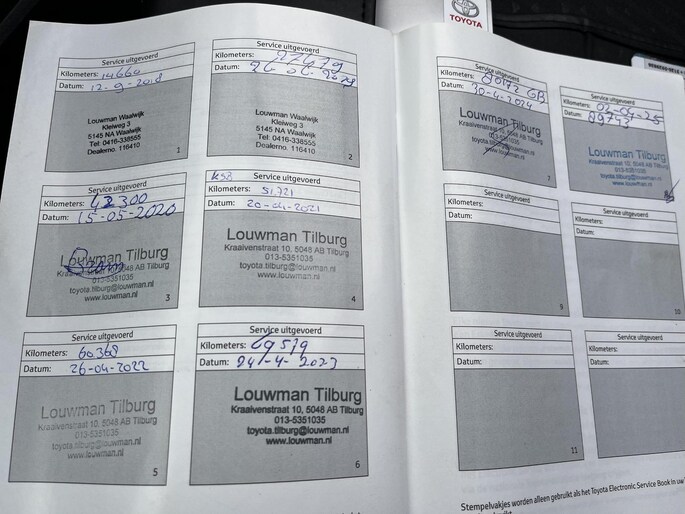 TOYOTA
Service uitgevoerd
Kilometers: 14660
Datum: 12-9-2018
Louwman Waalwijk
Kleiweg 3
5145 NA Waalwijk
Tel: 0416-338555
Dealerno. 116410
1
Service uitgevoerd
Kilometers:
Datum:
Louwman Waalwijk
Kleiweg 3
5145 NA Waalwijk
Tel: 0416-338555
Dealerno. 116410
2
Service uitgevoerd
Kilometers: 42300
Datum: 15-05-2020
Louwman Tilburg
5048 AB Tilburg
013-5351035
toyota.tilburg@louwman.nl
www.louwman.nl
3
Service uitgevoerd
Kilometers: 51.721
Datum: 20-04-2021
Louwman Tilburg
Kraaivenstraat 10, 5048 AB Tilburg
013-5351035
toyota.tilburg@louwman.nl
www.louwman.nl
4
Service uitgevoerd
Kilometers: 60.368
Datum: 26-04-2022
Louwman Tilburg
Kraaivenstraat 10, 5048 AB Tilburg
013-5351035
toyota.tilburg@louwman.nl
www.louwman.nl
5
Service uitgevoerd
Kilometers: 69579
Datum: 24-4-2023
Louwman Tilburg
Kraaivenstraat 10, 5048 AB Tilburg
013-5351035
toyota.tilburg@louwman.nl
www.louwman.nl
6
Service uitgevoerd
Kilometers:
Datum: 30-4-2024
Louwman Tilburg
Kraaivenstraat 10, 5048 AB Tilburg
013-5351035
toyota.tilburg@louwman.nl
www.louwman.nl
7
Service uitgevoerd
Kilometers:
Datum: 89743
Louwman Tilburg
Kraaivenstraat 10, 5048 AB Tilburg
013-5351035
toyota.tilburg@louwman.nl
www.louwman.nl
Service uitgevoerd
Kilometers:
Datum:
9
Service uitgevoerd
Kilometers:
Datum:
10
Service uitgevoerd
Kilometers:
Datum:
11
Service uitgevoerd
Kilometers:
Datum:
Stempelvakjes worden alleen gebruikt als het Toyota Electronic Service Book in uw